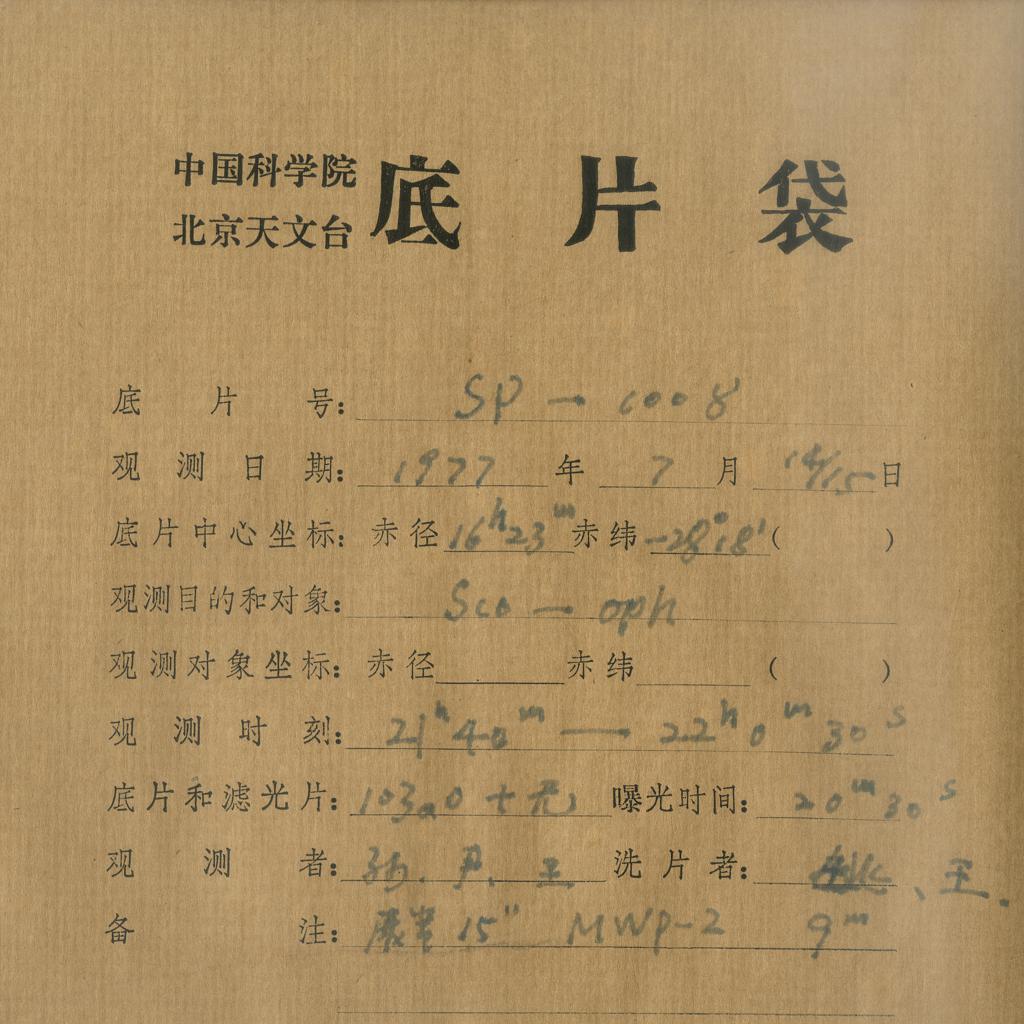 中国科学院
北京天文台
底片袋
底片号: SP — 1008
观测日期: 1977 年 7 月 14/15 日
底片中心坐标: 赤径 16ʰ23ᵐ 赤纬 -28°18′ ( )
观测目的和对象: Sco — oph
观测对象坐标: 赤径 赤纬 ( )
观测时刻: 21ʰ40ᵐ — 22ʰ0ᵐ30ˢ
底片和滤光片: 103aO + 无 曝光时间: 20ᵐ30ˢ
观测者: 张、尹、王 洗片者: 、王.
备注: 15″ MWP-2 9ᵐ